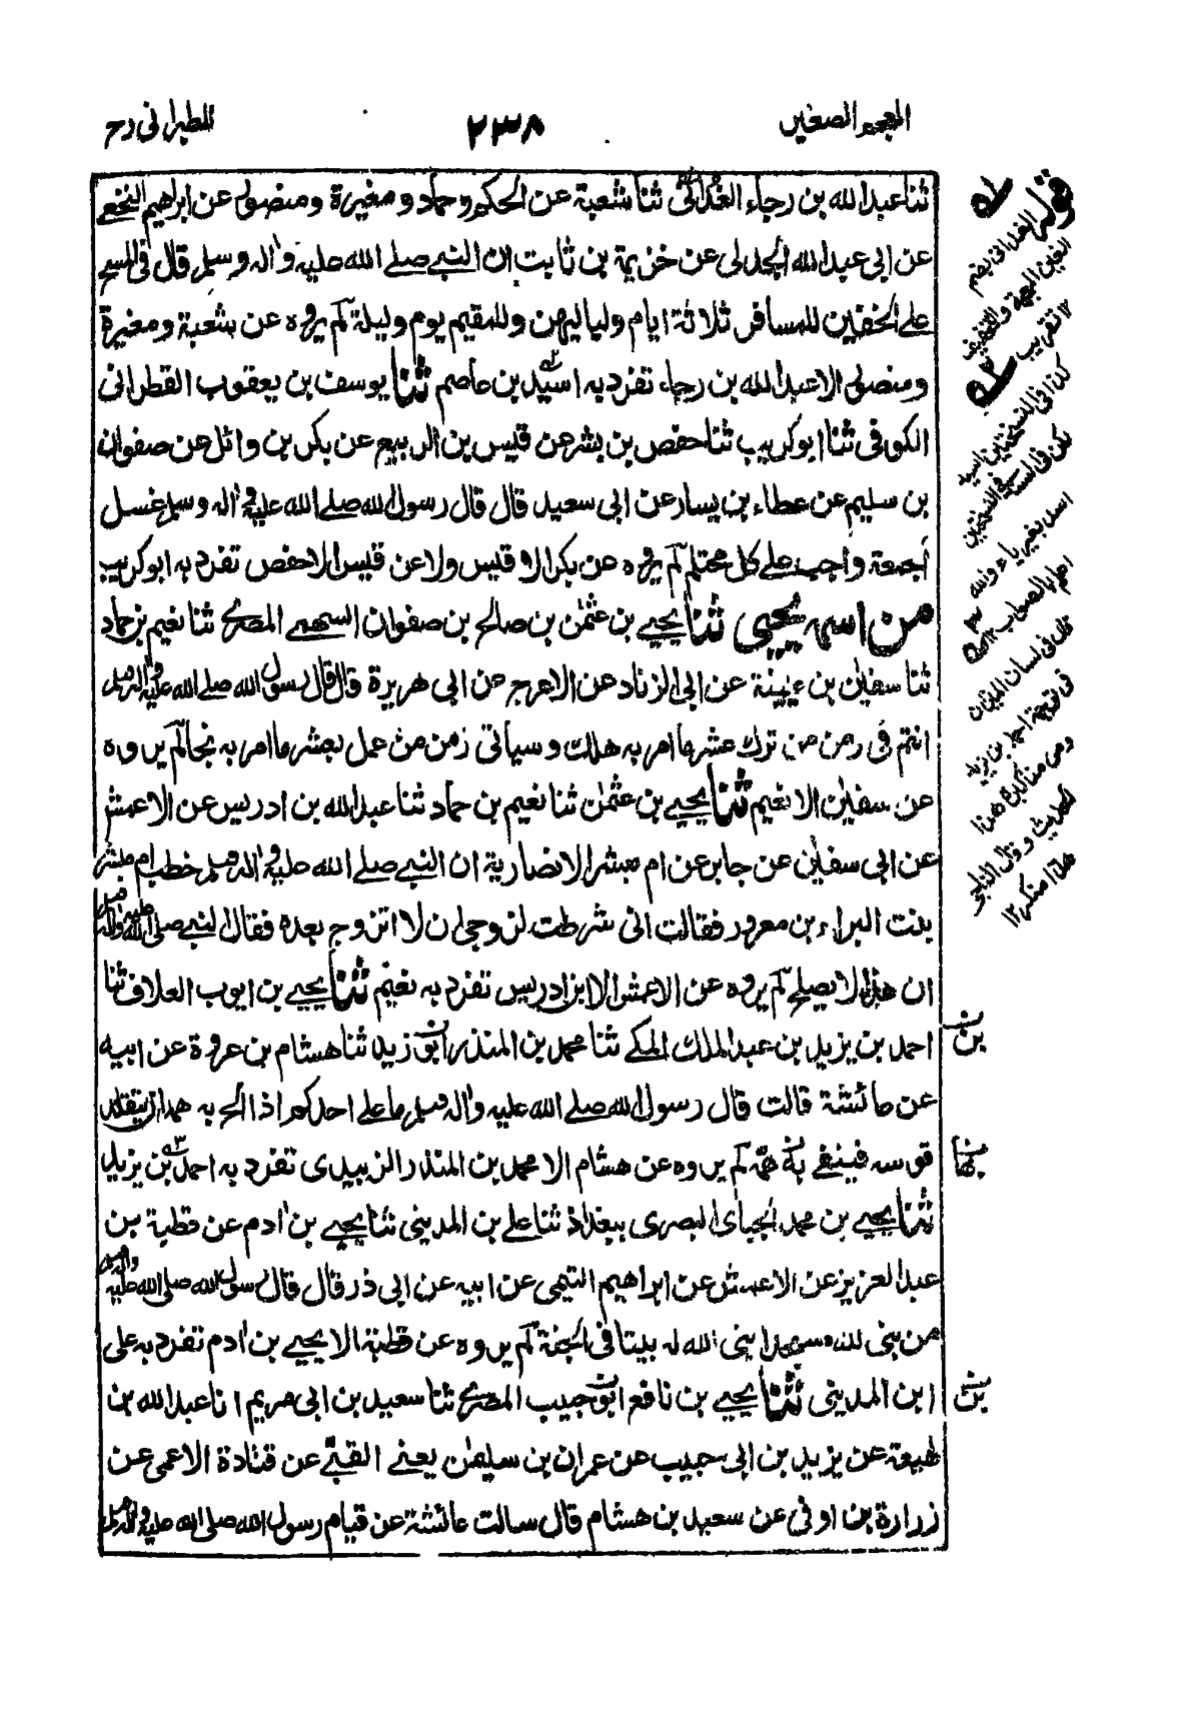 المعجم الصغير
٢٣٨
للطبرانى رح
ثنا عبد الله بن رجاء الغدانى ثنا شعبة عن الحكم وحماد ومغيرة ومنصور عن ابراهيم النخعے
عن ابى عبد الله الجدلى عن خزيمة بن ثابت ان النبے صلے الله عليه واله وسلم قال فى المسح
علے الخفين للمسافر ثلاثة ايام ولياليهن وللمقيم يوم وليلة لم يروه عن شعبة ومغيرة
ومنصور الا عبد الله بن رجاء تفرد به اسيد بن عاصم ثنا يوسف بن يعقوب القطرانى
الكوفى ثنا ابو كريب ثنا حفص بن بشر عن قيس بن الربيع عن بكر بن وائل عن صفوان
بن سليم عن عطاء بن يسار عن ابى سعيد قال قال رسول الله صلے الله عليه واله وسلم غسل
الجمعة واجب علے كل محتلم لم يروه عن بكر الا قيس ولا عن قيس الا حفص تفرد به ابو كريب
من اسمه يحيى ثنا يحيے بن عثمٰن بن صالح بن صفوان السهمے المصرے ثنا نعيم بن حماد
ثنا سفيٰن بن عيينة عن ابى الزناد عن الاعرج عن ابى هريرة قال قال رسول الله صلے الله عليه واله وسلم
انتم فى زمن من ترك عشر ما امر به هلك وسياتى زمن من عمل بعشر ما امر به نجا لم يروه
عن سفيٰن الا نعيم ثنا يحيے بن عثمٰن ثنا نعيم بن حماد ثنا عبد الله بن ادريس عن الاعمش
عن ابى سفيٰن عن جابر عن ام مبشر الانصارية ان النبے صلے الله عليه واله وسلم خطب ام مبشر
بنت البراء بن معرور فقالت انى شرطت لزوجى ان لا اتزوج بعده فقال النبے صلى الله عليه واله وسلم
ان هذا لا يصلح لم يروه عن الاعمش الا ابن ادريس تفرد به نعيم ثنا يحيے بن ايوب العلاف ثنا
احمد بن يزيد بن عبد الملك المكے ثنا محمد بن المنذر ابو زيد ثنا هشام بن عروة عن ابيه
عن عائشة قالت قال رسول الله صلے الله عليه واله وسلم ما علے احدكم اذا الح به همه ان يتقلد
قوسه فينفے به همه لم يروه عن هشام الا محمد بن المنذر الزبيدى تفرد به احمد بن يزيد
ثنا يحيے بن محمد الجياى البصرى ببغداذ ثنا علے بن المدينى ثنا يحيے بن ادم عن قطبة بن
عبد العزيز عن الاعمش عن ابراهيم التيمى عن ابيه عن ابى ذر قال قال رسول الله صلى الله عليه واله وسلم
من بنى لله مسجدا بنى الله له بيتا فى الجنة لم يروه عن قطبة الا يحيے بن ادم تفرد به على
ابن المدينى ثنا يحيے بن نافع ابو حبيب المصرے ثنا سعيد بن ابى مريم انا عبد الله بن
لهيعة عن يزيد بن ابى حبيب عن عمران بن سليمٰن يعنے القبے عن قتادة الاعمى عن
زرارة بن اوفى عن سعيد بن هشام قال سالت عائشة عن قيام رسول الله صلى الله عليه واله وسلم
قوله الغدانى بضم
الغين المعجمة والتخفيف
١٢ تقريب
كذا فى النسختين اسيد
لكن فى النسختين
اسد بغير ياء والله
اعلم بالصواب ١٢
قال فى لسان الميزان
فى ترجمة احمد بن يزيد
ومن مناكيره هذا
الحديث وقال الذهبى
هذا منكر ١٢
بن
بها
بن